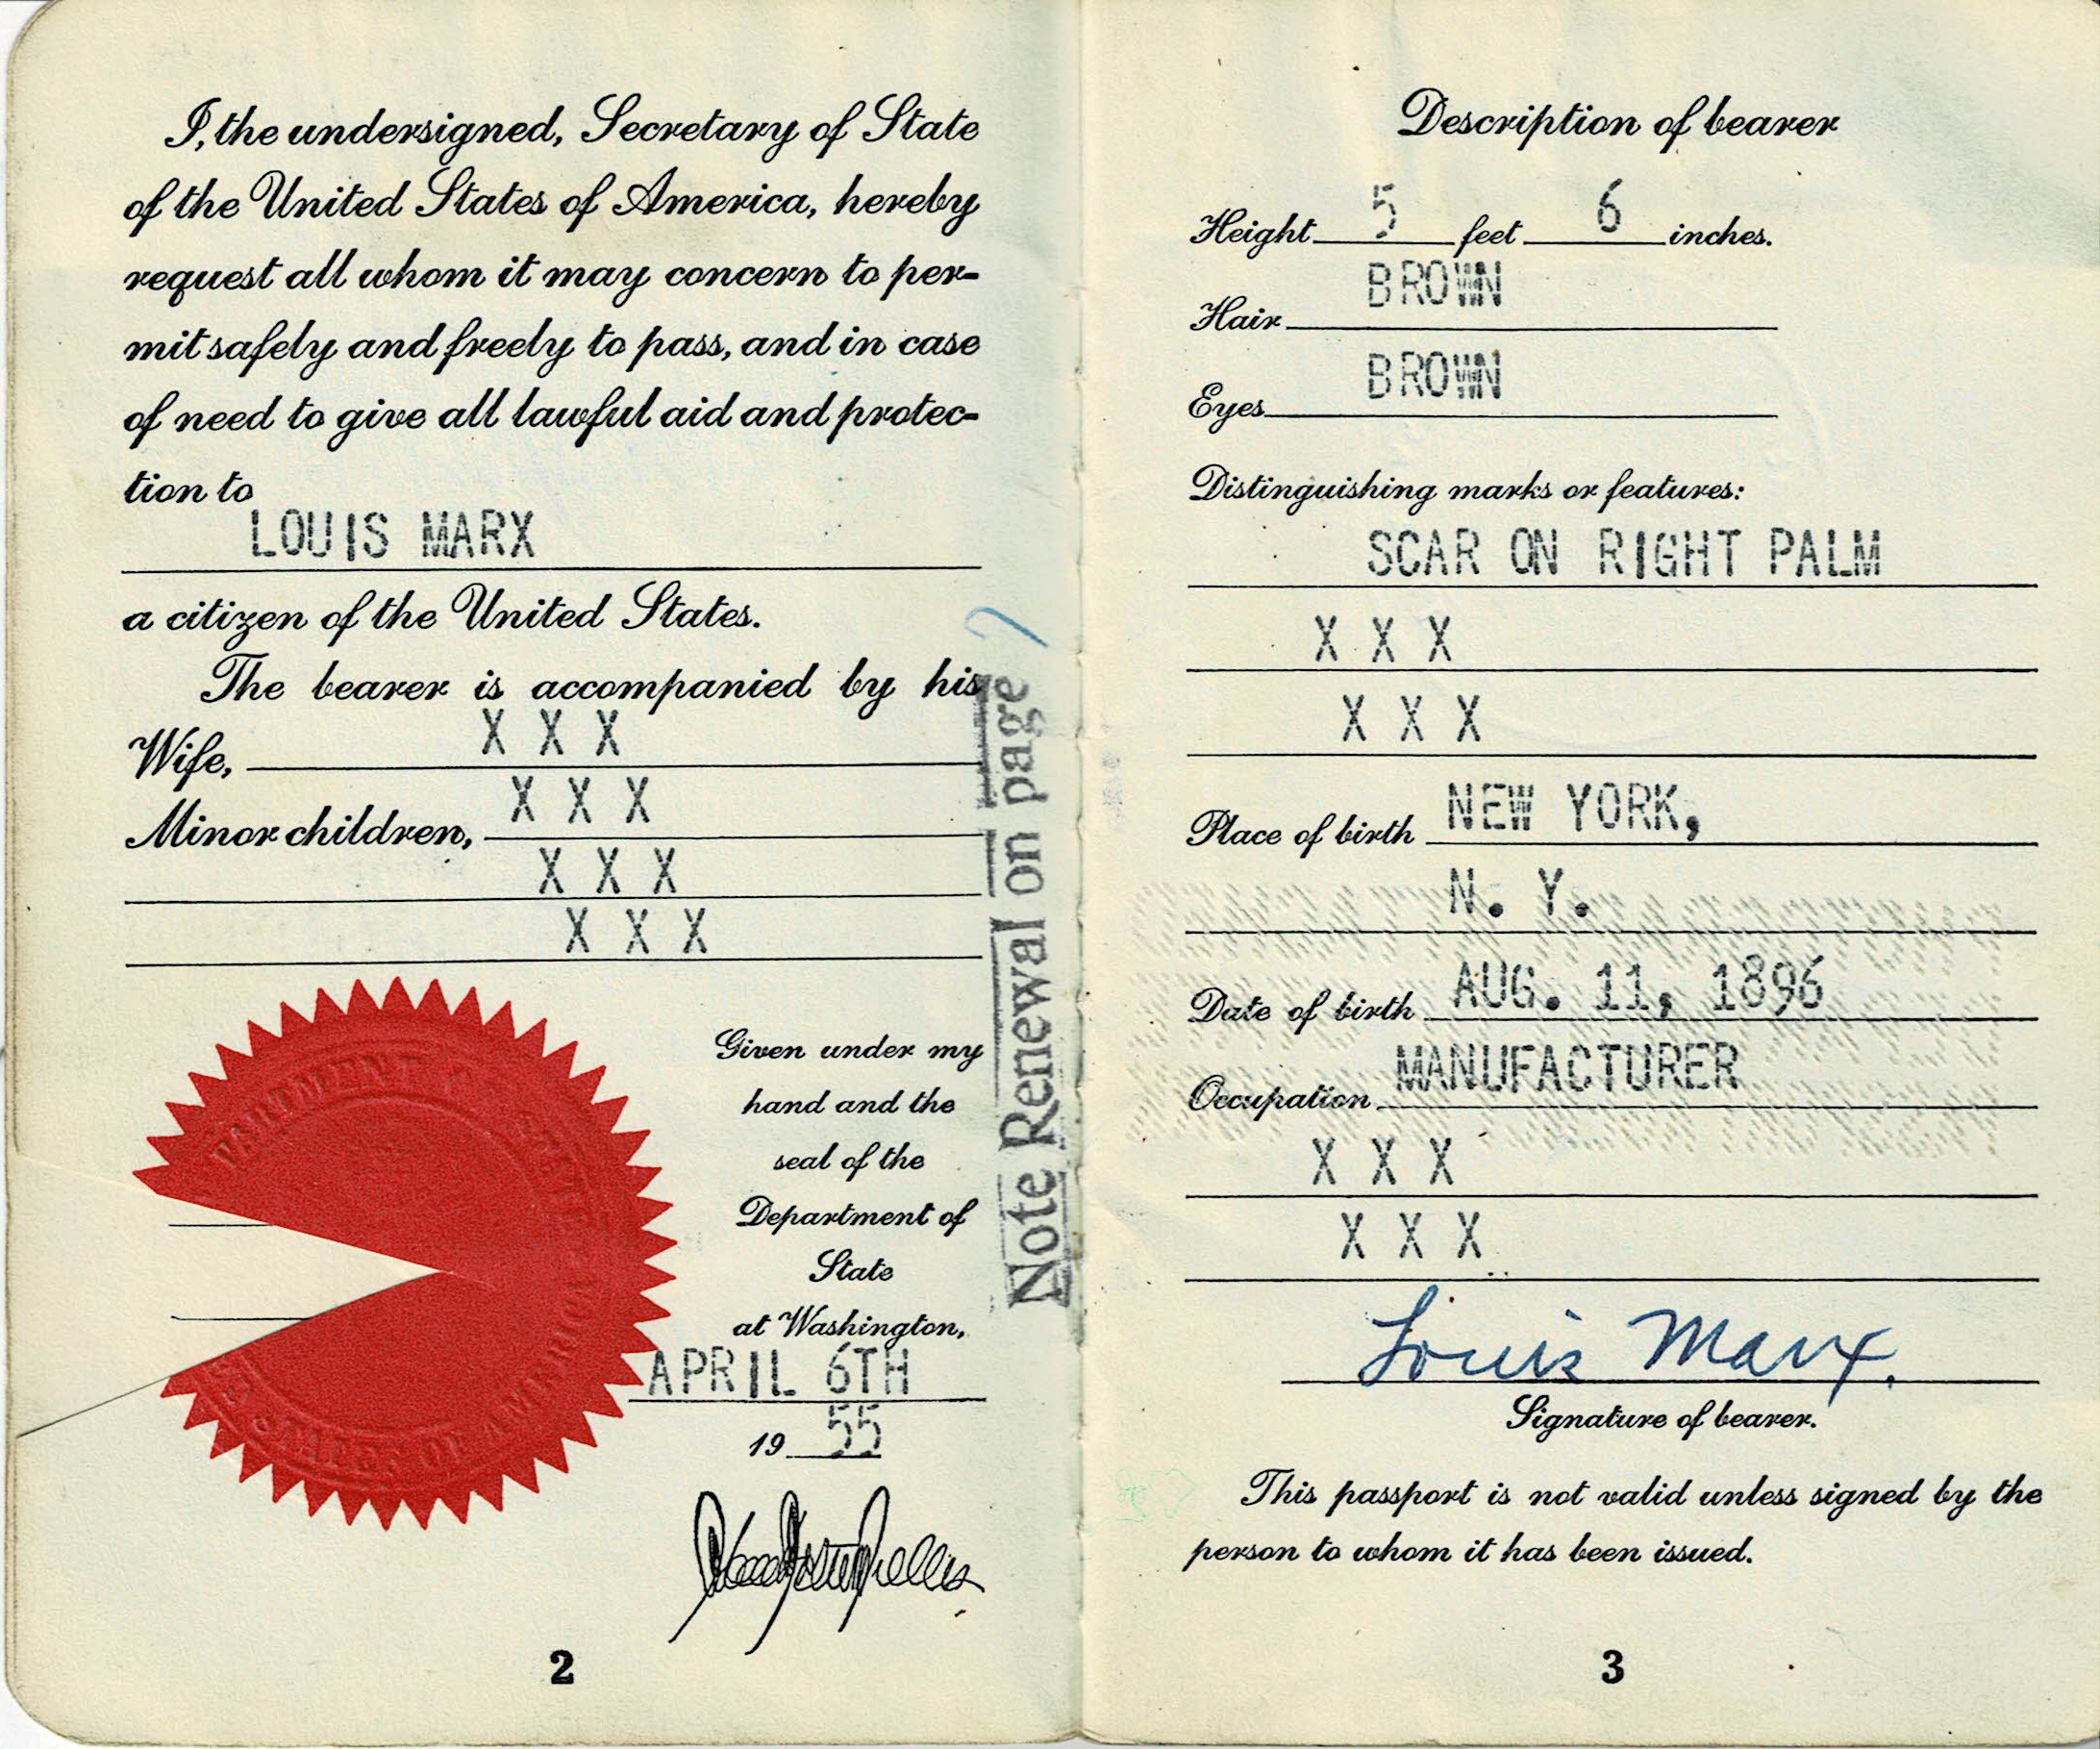 I, the undersigned, Secretary of State
of the United States of America, hereby
request all whom it may concern to per-
mit safely and freely to pass, and in case
of need to give all lawful aid and protec-
tion to
LOUIS MARX
a citizen of the United States.
The bearer is accompanied by his
X X X
Wife,
X X X
Minor children,
X X X
X X X
Given under my
hand and the
seal of the
Department of
State
at Washington,
APRIL 6TH
19 55
John Foster Dulles
2
Note Renewal on page 7
Description of bearer
Height 5 feet 6 inches.
Hair BROWN
Eyes BROWN
Distinguishing marks or features:
SCAR ON RIGHT PALM
X X X
X X X
Place of birth NEW YORK,
N. Y.
Date of birth AUG. 11, 1896
Occupation MANUFACTURER
X X X
X X X
Louis Marx.
Signature of bearer.
This passport is not valid unless signed by the
person to whom it has been issued.
3